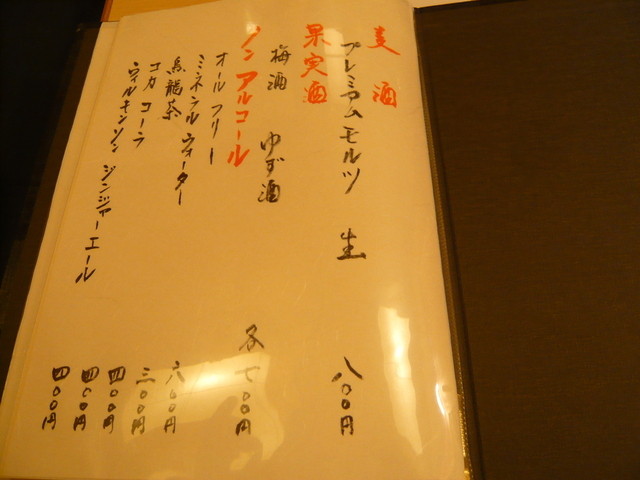 麦 酒
プレミアムモルツ 生 八〇〇円
果実酒
梅酒 ゆず酒 各七〇〇円
ノンアルコール
オールフリー 六〇〇円
ミネラルウォーター 三〇〇円
烏龍茶 四〇〇円
コカコーラ 四〇〇円
ウィルキンソン ジンジャーエール 四〇〇円